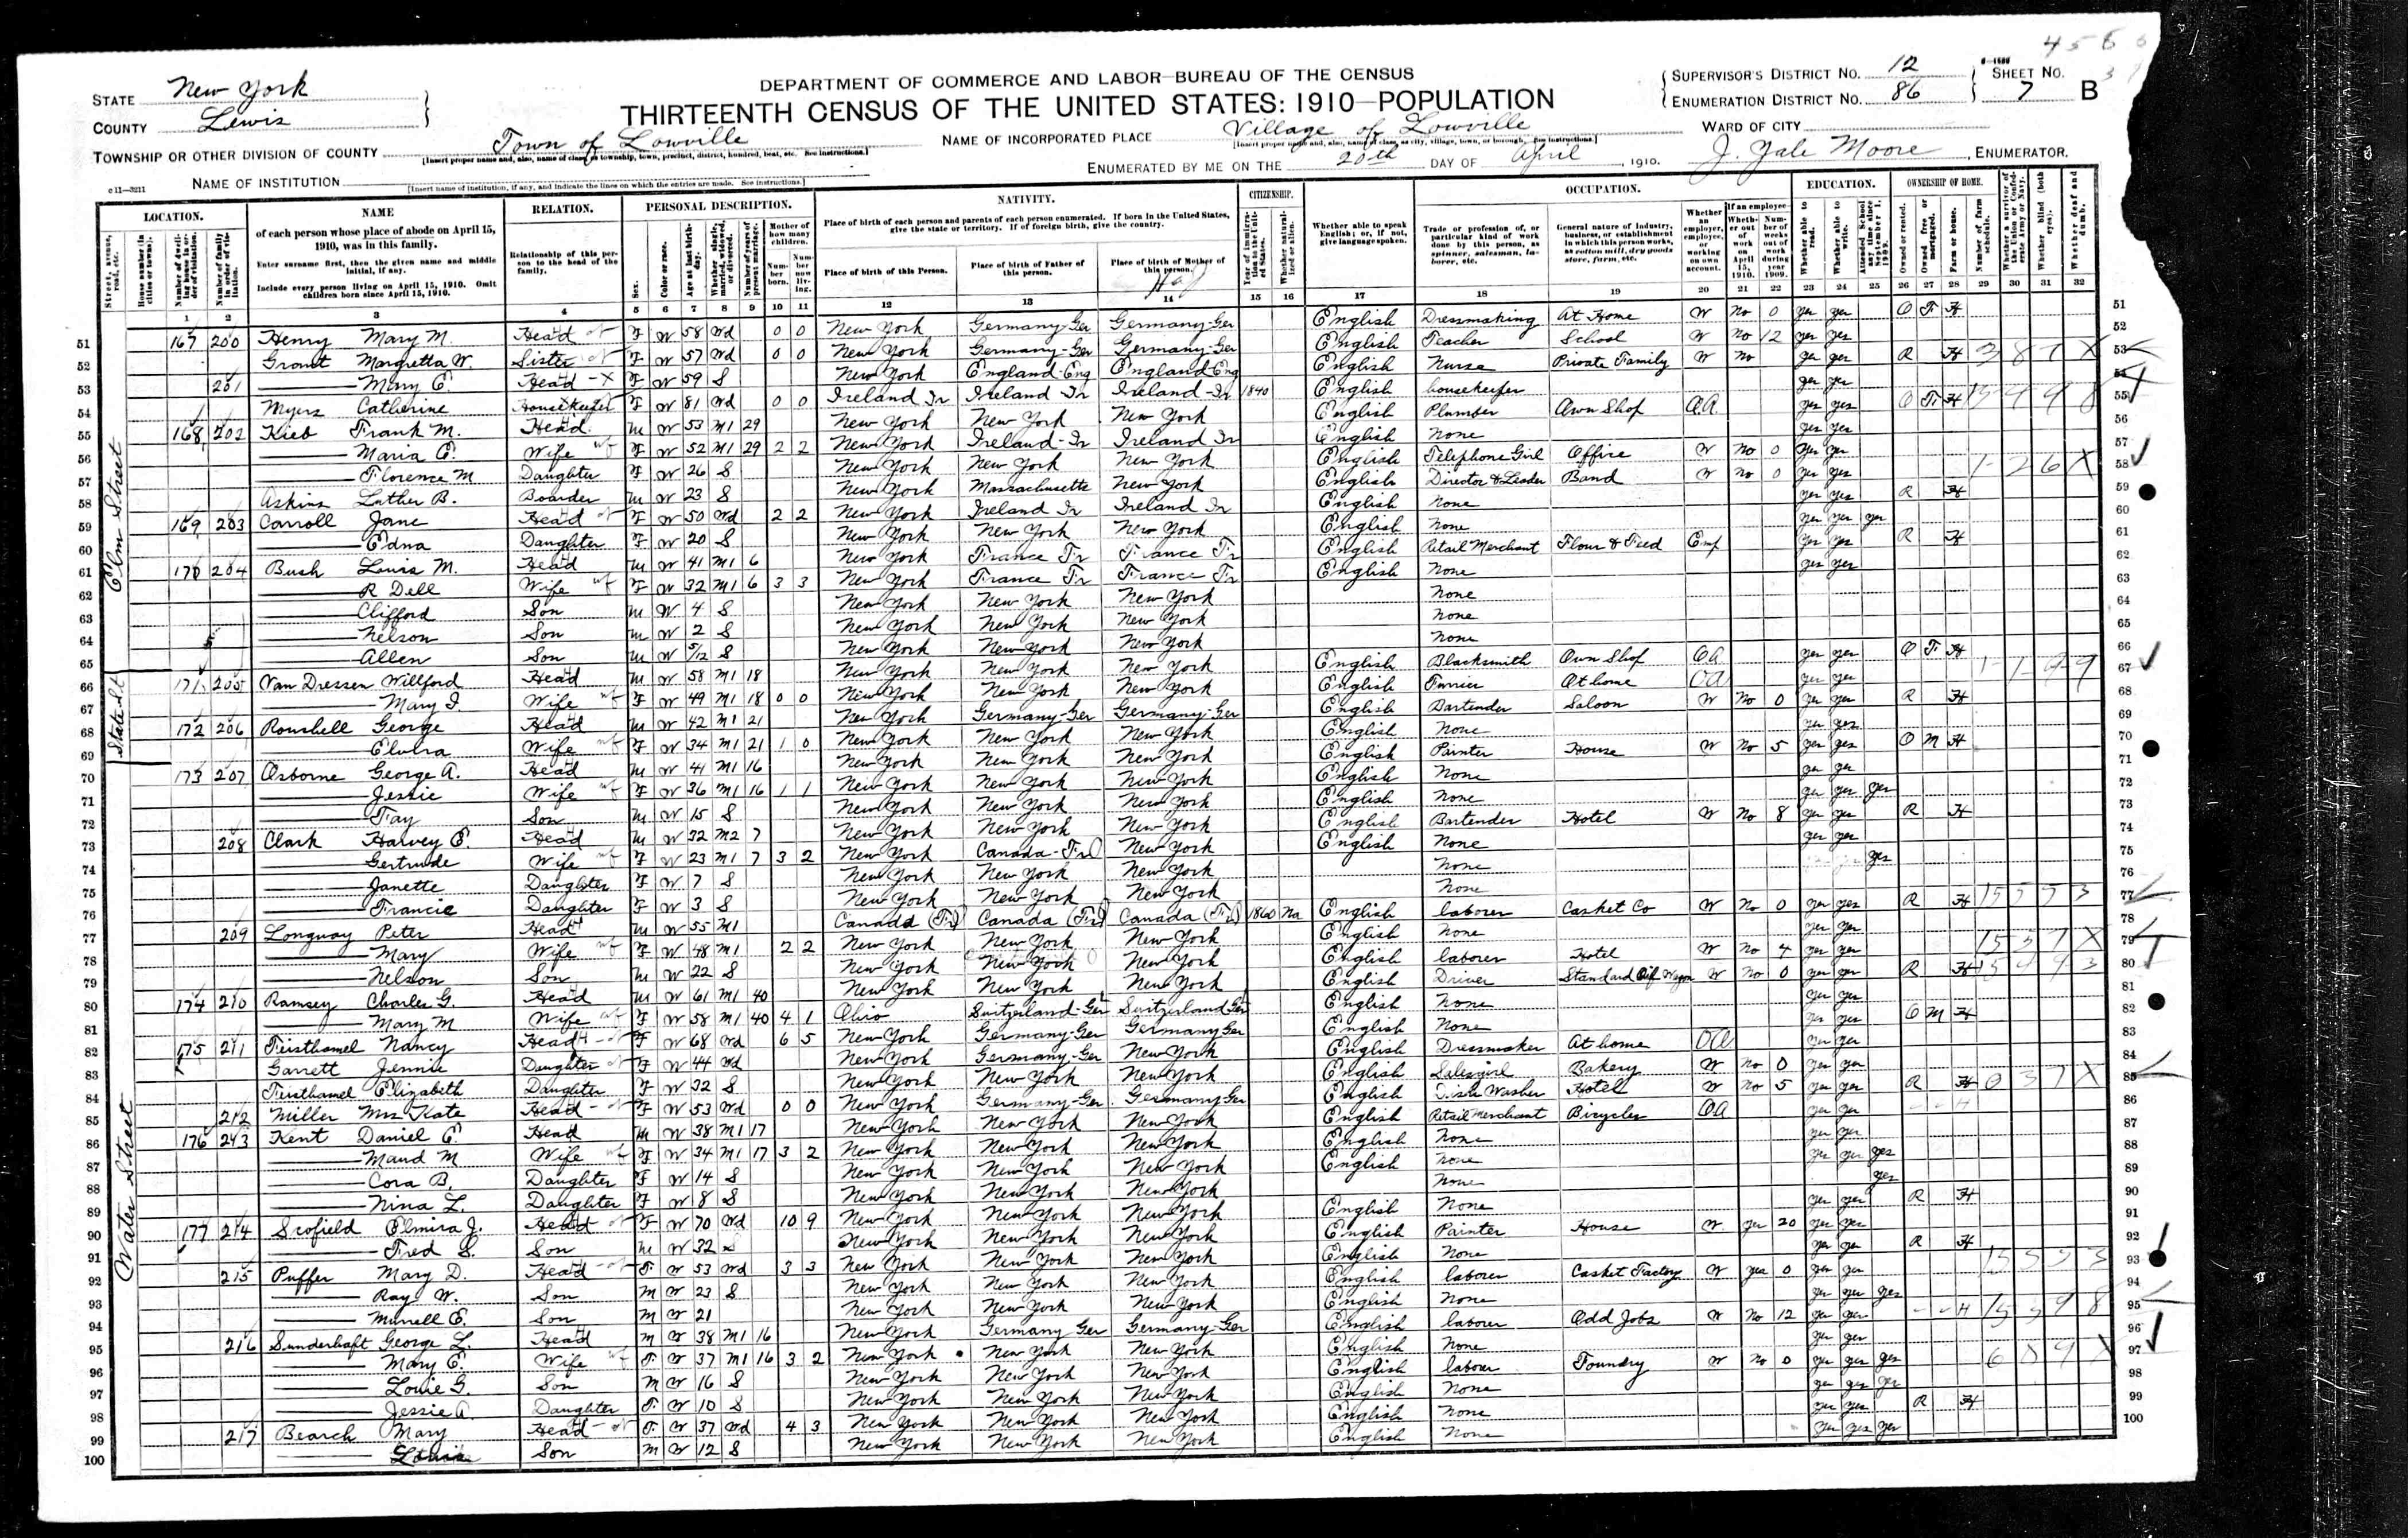 4 5 6
DEPARTMENT OF COMMERCE AND LABOR—BUREAU OF THE CENSUS
THIRTEENTH CENSUS OF THE UNITED STATES: 1910—POPULATION
STATE New York
COUNTY Lewis
TOWNSHIP OR OTHER DIVISION OF COUNTY Town of Lowville
[Insert proper name and, also, name of class, as township, town, precinct, district, hundred, beat, etc. See instructions.]
NAME OF INSTITUTION
[Insert name of institution, if any, and indicate the lines on which the entries are made. See instructions.]
NAME OF INCORPORATED PLACE Village of Lowville
[Insert proper name and, also, name of class, as city, village, town, or borough. See instructions.]
ENUMERATED BY ME ON THE 20th DAY OF April, 1910. J. Yale Moore, ENUMERATOR.
SUPERVISOR'S DISTRICT NO. 12
ENUMERATION DISTRICT NO. 86
SHEET NO. 7 B
WARD OF CITY
LOCATION. NAME RELATION. PERSONAL DESCRIPTION. NATIVITY. CITIZENSHIP. OCCUPATION. EDUCATION. OWNERSHIP OF HOME.
of each person whose place of abode on April 15, 1910, was in this family.
Enter surname first, then the given name and middle initial, if any.
Include every person living on April 15, 1910. Omit children born since April 15, 1910.
Relationship of this person to the head of the family.
Place of birth of each person and parents of each person enumerated. If born in the United States, give the state or territory. If of foreign birth, give the country.
Place of birth of this Person. Place of birth of Father of this person. Place of birth of Mother of this person.
Whether able to speak English; or, if not, give language spoken.
Trade or profession of, or particular kind of work done by this person, as spinner, salesman, laborer, etc.
General nature of industry, business, or establishment in which this person works, as cotton mill, dry goods store, farm, etc.
1 2 3 4 5 6 7 8 9 10 11 12 13 14 15 16 17 18 19 20 21 22 23 24 25 26 27 28 29 30 31 32
Elm Street
51 167 200 Henry Mary M. Head F W 58 Wd 0 0 New York Germany-Ger Germany-Ger English Dressmaking At Home W No 0 yes yes O F H
52 Grant Margretta W. Sister F W 57 Wd 0 0 New York Germany-Ger Germany-Ger English Teacher School W No 12 yes yes
53 201 — Mary E Head F W 59 S New York England-Eng England-Eng English Nurse Private Family W No yes yes R H
54 Myers Catherine Housekeeper F W 81 Wd 0 0 Ireland Ir Ireland Ir Ireland-Ir 1840 English housekeeper yes yes
55 168 202 Kieb Frank M. Head M W 53 M1 29 New York New York New York English Plumber Own Shop OA yes yes O F H
56 — Maria E. Wife F W 52 M1 29 2 2 New York Ireland-Ir Ireland Ir English None yes yes
57 — Florence M Daughter F W 26 S New York New York New York English Telephone Girl Office W No 0 yes yes
58 Askins Luther B. Boarder M W 23 S New York Massachusetts New York English Director & Leader Band W No 0 yes yes
59 169 203 Carroll Jane Head F W 50 Wd 2 2 New York Ireland Ir Ireland Ir English None yes yes R H
60 — Edna Daughter F W 20 S New York New York New York English None yes yes yes
61 170 204 Bush Louis M. Head M W 41 M1 6 New York France Fr France Fr English Retail Merchant Flour & Feed Emp yes yes R H
62 — R Dell Wife F W 32 M1 6 3 3 New York France Fr France Fr English None yes yes
63 — Clifford Son M W 4 S New York New York New York None
64 — Nelson Son M W 2 S New York New York New York None
65 — Allen Son M W 5/12 S New York New York New York None
State St
66 171 205 Van Dressen Willford Head M W 58 M1 18 New York New York New York English Blacksmith Own Shop OA yes yes O F H
67 — Mary I. Wife F W 49 M1 18 0 0 New York New York New York English Furrier At home OA yes yes
68 172 206 Roushell George Head M W 42 M1 21 New York Germany-Ger Germany-Ger English Bartender Saloon W No 0 yes yes R H
69 — Elvira Wife F W 34 M1 21 1 0 New York New York New York English None yes yes
70 173 207 Osborne George A. Head M W 41 M1 16 New York New York New York English Painter House W No 5 yes yes O M H
71 — Jessie Wife F W 36 M1 16 1 1 New York New York New York English None yes yes
72 — Fay Son M W 15 S New York New York New York English None yes yes yes
73 208 Clark Harvey E. Head M W 32 M2 7 New York New York New York English Bartender Hotel W No 8 yes yes R H
74 — Gertrude Wife F W 23 M1 7 3 2 New York Canada-Fr New York English None yes yes
75 — Janette Daughter F W 7 S New York New York New York None yes
76 — Francis Daughter F W 3 S New York New York New York None
77 209 Longway Peter Head M W 55 M1 Canada (Fr) Canada (Fr) Canada (Fr) 1860 Na English laborer Casket Co W No 0 yes yes R H
78 — Mary Wife F W 48 M1 2 2 New York New York New York English None yes yes
79 — Nelson Son M W 22 S New York New York New York English laborer Hotel W No 4 yes yes
Water Street
80 174 210 Ramsey Charles G. Head M W 61 M1 40 New York New York New York English Driver Standard Oil Wagon W No 0 yes yes R H
81 — Mary M Wife F W 58 M1 40 4 1 Ohio Switzerland-Ger Switzerland Ger English None yes yes
82 175 211 Feisthamel Nancy Head F W 68 Wd 6 5 New York Germany-Ger Germany Ger English None yes yes O M H
83 Garrett Jennie Daughter F W 44 Wd New York Germany-Ger New York English Dressmaker At home OA yes yes
84 Feisthamel Elizabeth Daughter F W 32 S New York New York New York English Salesgirl Bakery W No 0 yes yes
85 212 Miller Mrs Kate Head F W 53 Wd 0 0 New York Germany-Ger Germany Ger English Dish Washer Hotel W No 5 yes yes R H
86 176 213 Kent Daniel E. Head M W 38 M1 17 New York New York New York English Retail Merchant Bicycles OA yes yes
87 — Maud M Wife F W 34 M1 17 3 2 New York New York New York English None yes yes
88 — Cora B. Daughter F W 14 S New York New York New York English None yes yes yes
89 — Nina L. Daughter F W 8 S New York New York New York None yes
90 177 214 Scofield Elmira J. Head F W 70 Wd 10 9 New York New York New York English None yes yes R H
91 — Fred S. Son M W 32 S New York New York New York English Painter House W yes 20 yes yes
92 215 Puffer Mary D. Head F W 53 Wd 3 3 New York New York New York English None yes yes R H
93 — Ray W. Son M W 23 S New York New York New York English laborer Casket Factory W yes 0 yes yes
94 — Murrell E. Son M W 21 New York New York New York English None yes yes yes
95 216 Sunderhaft George L Head M W 38 M1 16 New York Germany Ger Germany-Ger English laborer Odd Jobs W No 12 yes yes H
96 — Mary E. Wife F W 37 M1 16 3 2 New York New York New York English None yes yes
97 — Louie G. Son M W 16 S New York New York New York English laborer Foundry W No 0 yes yes yes
98 — Jessie A. Daughter F W 10 S New York New York New York English None yes yes yes
99 217 Bearch Mary Head F W 37 Wd 4 3 New York New York New York English None yes yes R H
100 — Louis Son M W 12 S New York New York New York English None yes yes yes